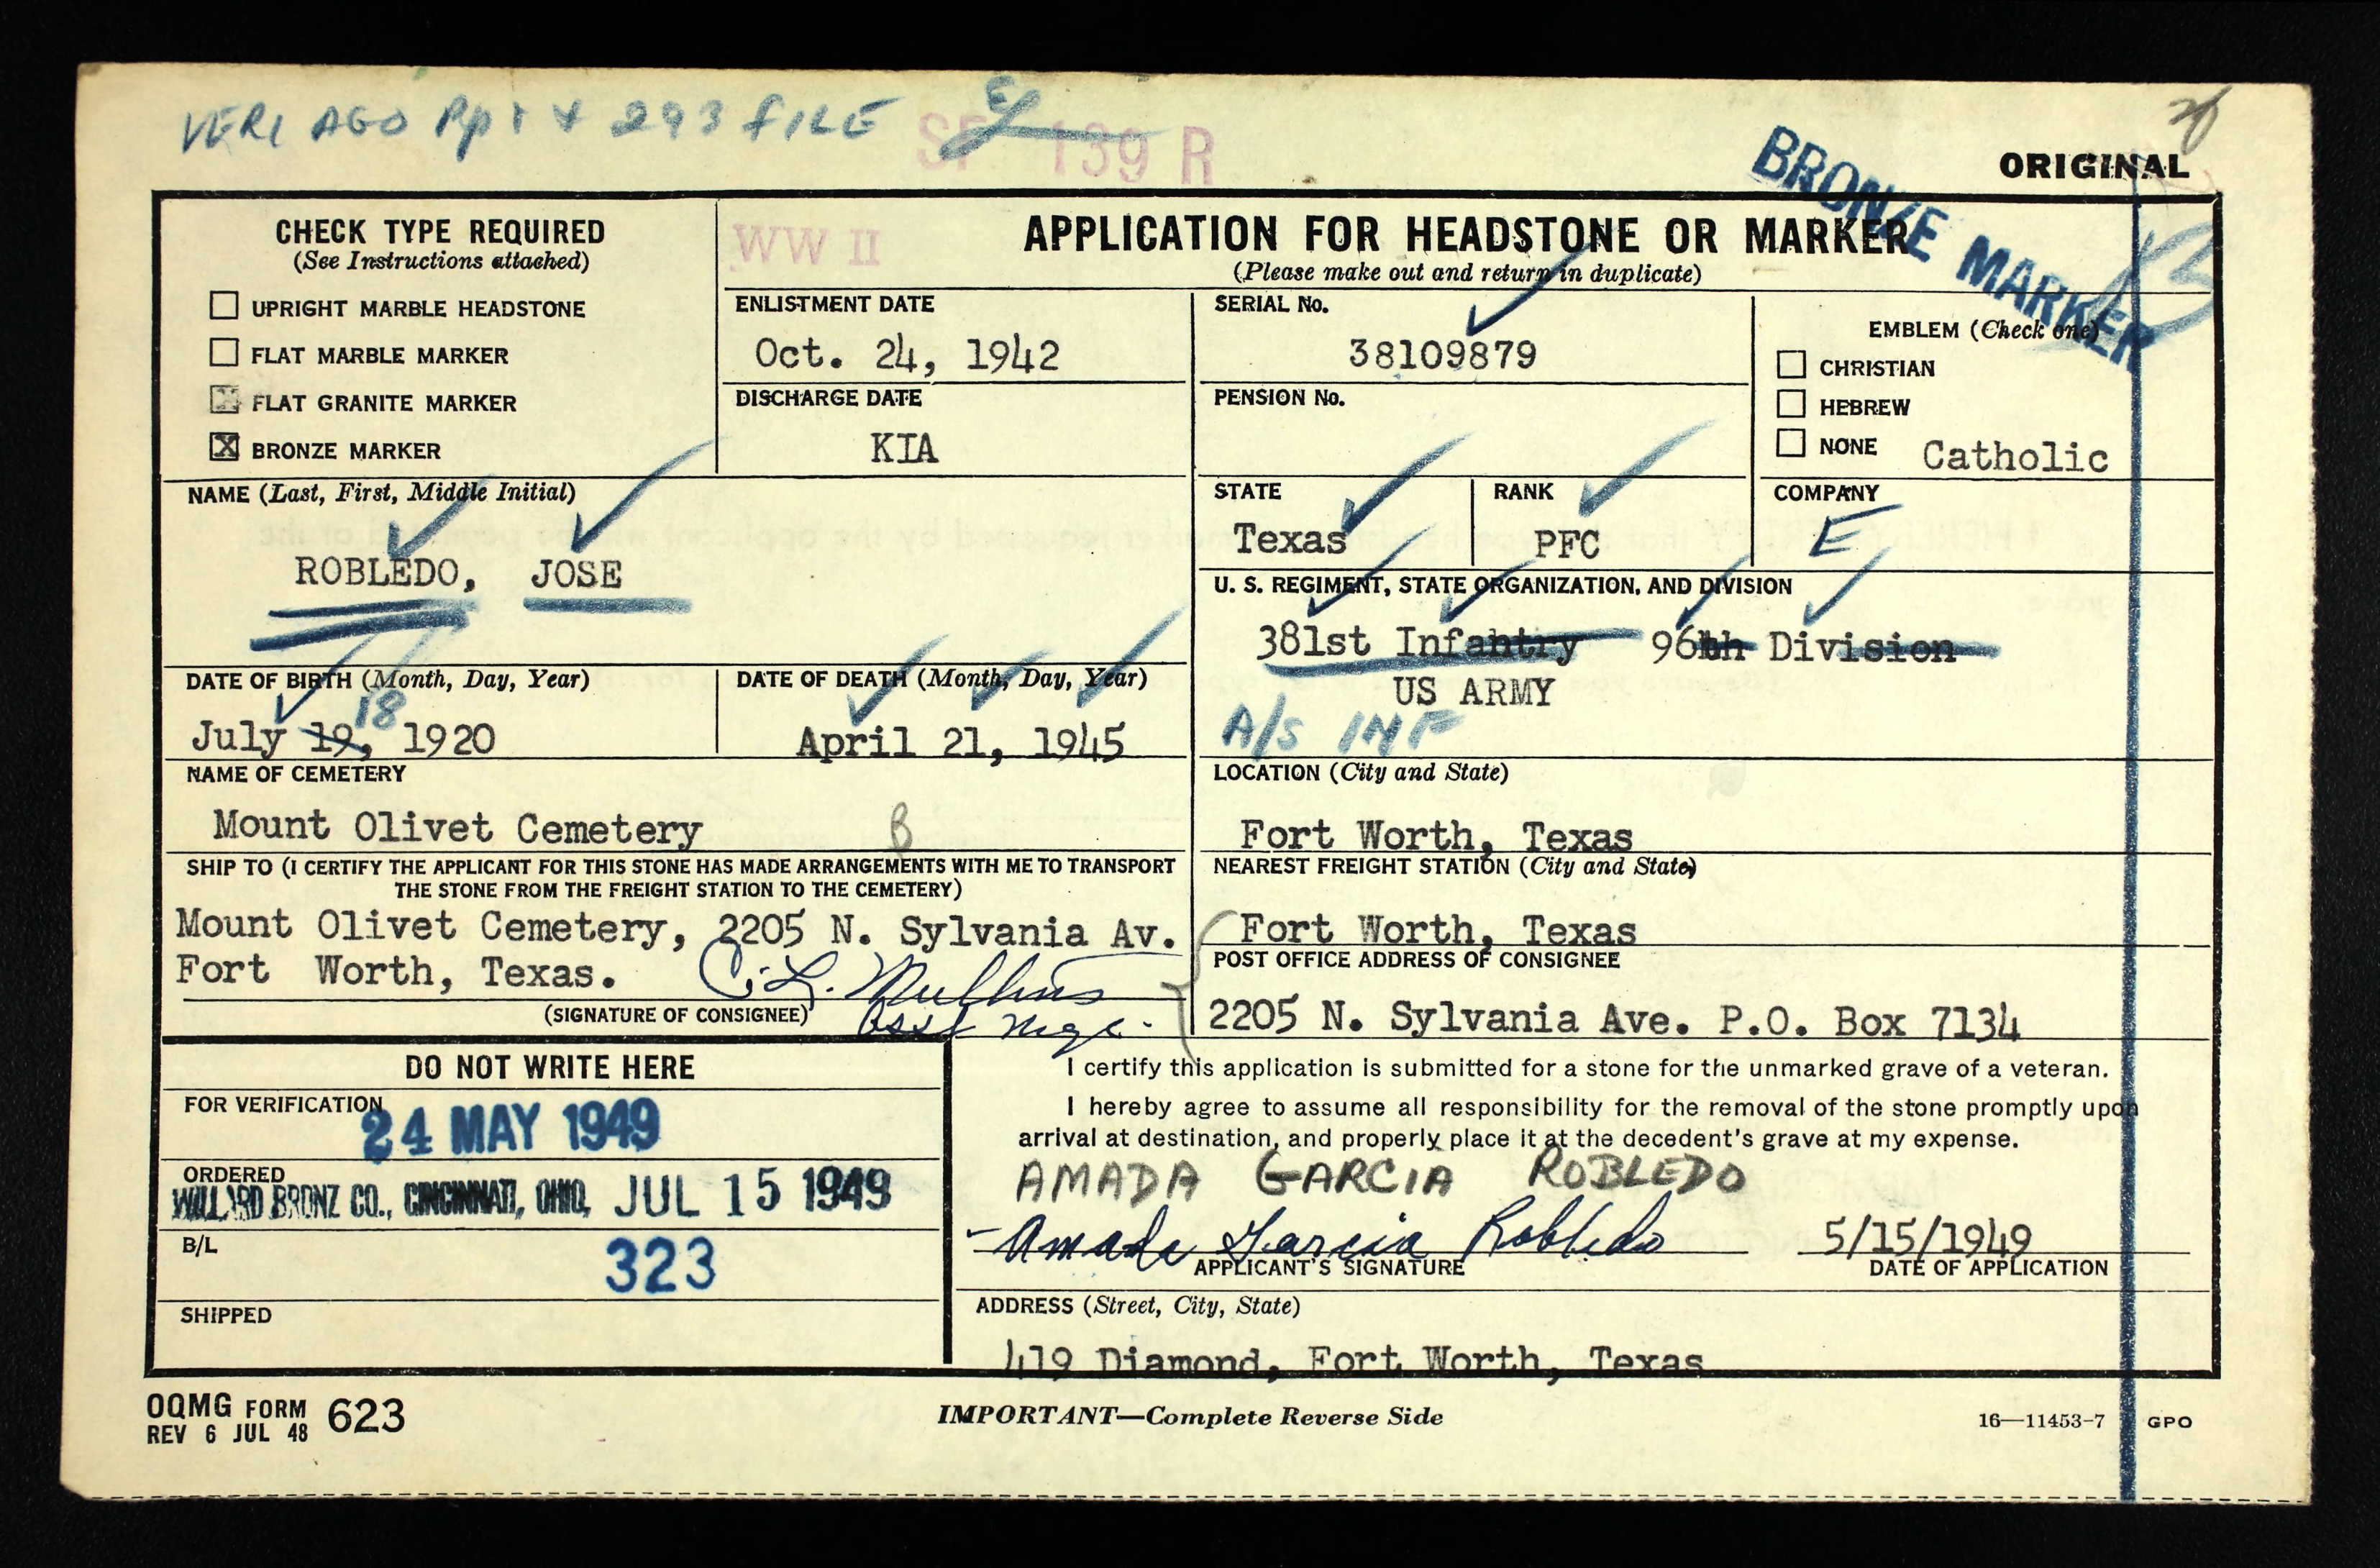 VERI AGO Rpt & 293 FILE
SF 139 R
ORIGINAL
BRONZE MARKER
CHECK TYPE REQUIRED
(See Instructions attached)
UPRIGHT MARBLE HEADSTONE
FLAT MARBLE MARKER
FLAT GRANITE MARKER
X BRONZE MARKER
WW II
APPLICATION FOR HEADSTONE OR MARKER
(Please make out and return in duplicate)
ENLISTMENT DATE
Oct. 24, 1942
DISCHARGE DATE
KIA
SERIAL No.
38109879
PENSION No.
EMBLEM (Check one)
CHRISTIAN
HEBREW
NONE Catholic
NAME (Last, First, Middle Initial)
ROBLEDO, JOSE
STATE
Texas
RANK
PFC
COMPANY
E
U. S. REGIMENT, STATE ORGANIZATION, AND DIVISION
381st Infantry 96th Division
US ARMY
A/S INF
DATE OF BIRTH (Month, Day, Year)
18
July 19, 1920
DATE OF DEATH (Month, Day, Year)
April 21, 1945
NAME OF CEMETERY
Mount Olivet Cemetery B
LOCATION (City and State)
Fort Worth, Texas
SHIP TO (I CERTIFY THE APPLICANT FOR THIS STONE HAS MADE ARRANGEMENTS WITH ME TO TRANSPORT
THE STONE FROM THE FREIGHT STATION TO THE CEMETERY)
Mount Olivet Cemetery, 2205 N. Sylvania Av.
Fort Worth, Texas. C. L. Mullins
(SIGNATURE OF CONSIGNEE) Asst Mgr.
NEAREST FREIGHT STATION (City and State)
Fort Worth, Texas
POST OFFICE ADDRESS OF CONSIGNEE
2205 N. Sylvania Ave. P.O. Box 7134
DO NOT WRITE HERE
FOR VERIFICATION
24 MAY 1949
ORDERED
WILLARD BRONZ CO., CINCINNATI, OHIO, JUL 15 1949
B/L
323
SHIPPED
I certify this application is submitted for a stone for the unmarked grave of a veteran.
I hereby agree to assume all responsibility for the removal of the stone promptly upon
arrival at destination, and properly place it at the decedent's grave at my expense.
AMADA GARCIA ROBLEDO
Amada Garcia Robledo 5/15/1949
APPLICANT'S SIGNATURE DATE OF APPLICATION
ADDRESS (Street, City, State)
419 Diamond, Fort Worth, Texas
OQMG FORM 623
REV 6 JUL 48
IMPORTANT—Complete Reverse Side
16—11453-7 GPO